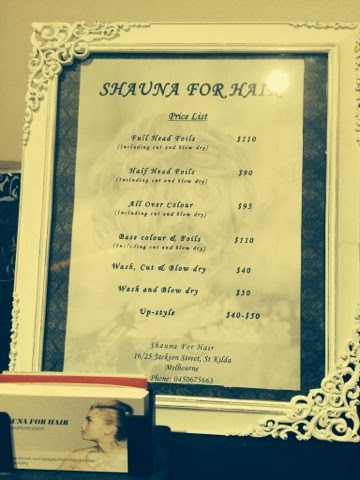 SHAUNA FOR HAIR
Price List
Full Head Foils $110
(Including cut and blow dry)
Half Head Foils $90
(Including cut and blow dry)
All Over Colour $95
(Including cut and blow dry)
Base colour & Foils $110
(Including cut and blow dry)
Wash, Cut & Blow dry $40
Wash and Blow dry $30
Up-style $40-$50
Shauna For Hair
16/25 Jackson Street, St Kilda
Melbourne
Phone: 0450675663
AUNA FOR HAIR